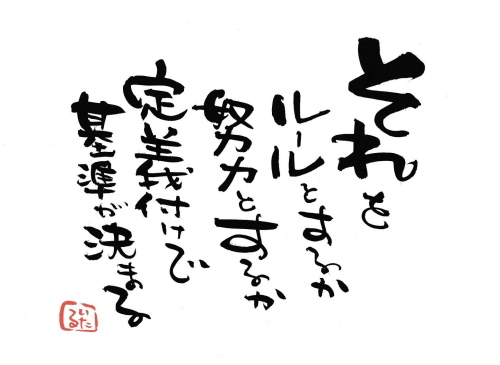 それを
ルールとするか
努力とするか
定義付けで
基準が決まる
いたる